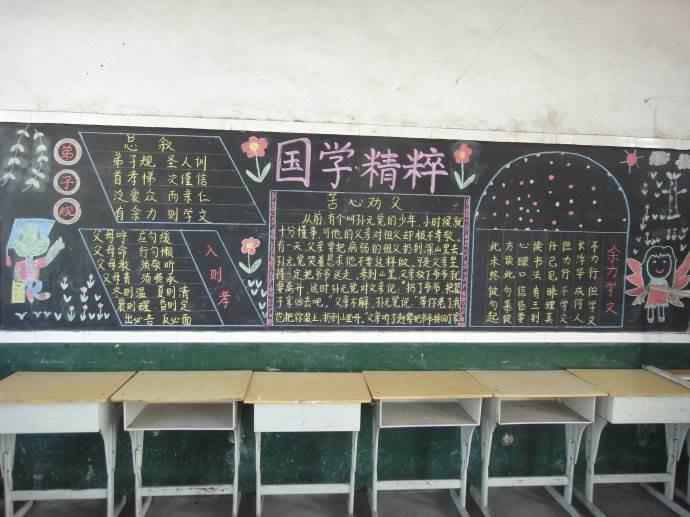 国学精粹
弟子规
总叙
弟子规 圣人训
首孝悌 次谨信
泛爱众 而亲仁
有余力 则学文
入则孝
父母呼 应勿缓
父母命 行勿懒
父母教 须敬听
父母责 须顺承
冬则温 夏则清
晨则醒 昏则定
出必告 反必面
苦心劝父
从前,有个叫孙元觉的少年,小时候就
十分懂事,可他的父亲对祖父却极不孝敬
有一天,父亲要把病弱的祖父扔到深山里去,
孙元觉哭着恳求他不要这样做,可是父亲坚
持一定把爷爷送走,来到山里,父亲放下爷爷就
要离开,这时孙元觉对父亲说,"扔了爷爷,把篮
子拿回去吧。"父亲不解,孙元觉说,"等你老了我
也把你装上,扔到山里呀。"父亲听了赶紧把爷爷接回了家
余力学文
不力行 但学文
长浮华 成何人
但力行 不学文
任己见 昧理真
读书法 有三到
心眼口 信皆要
方读此 勿慕彼
此未终 彼勿起